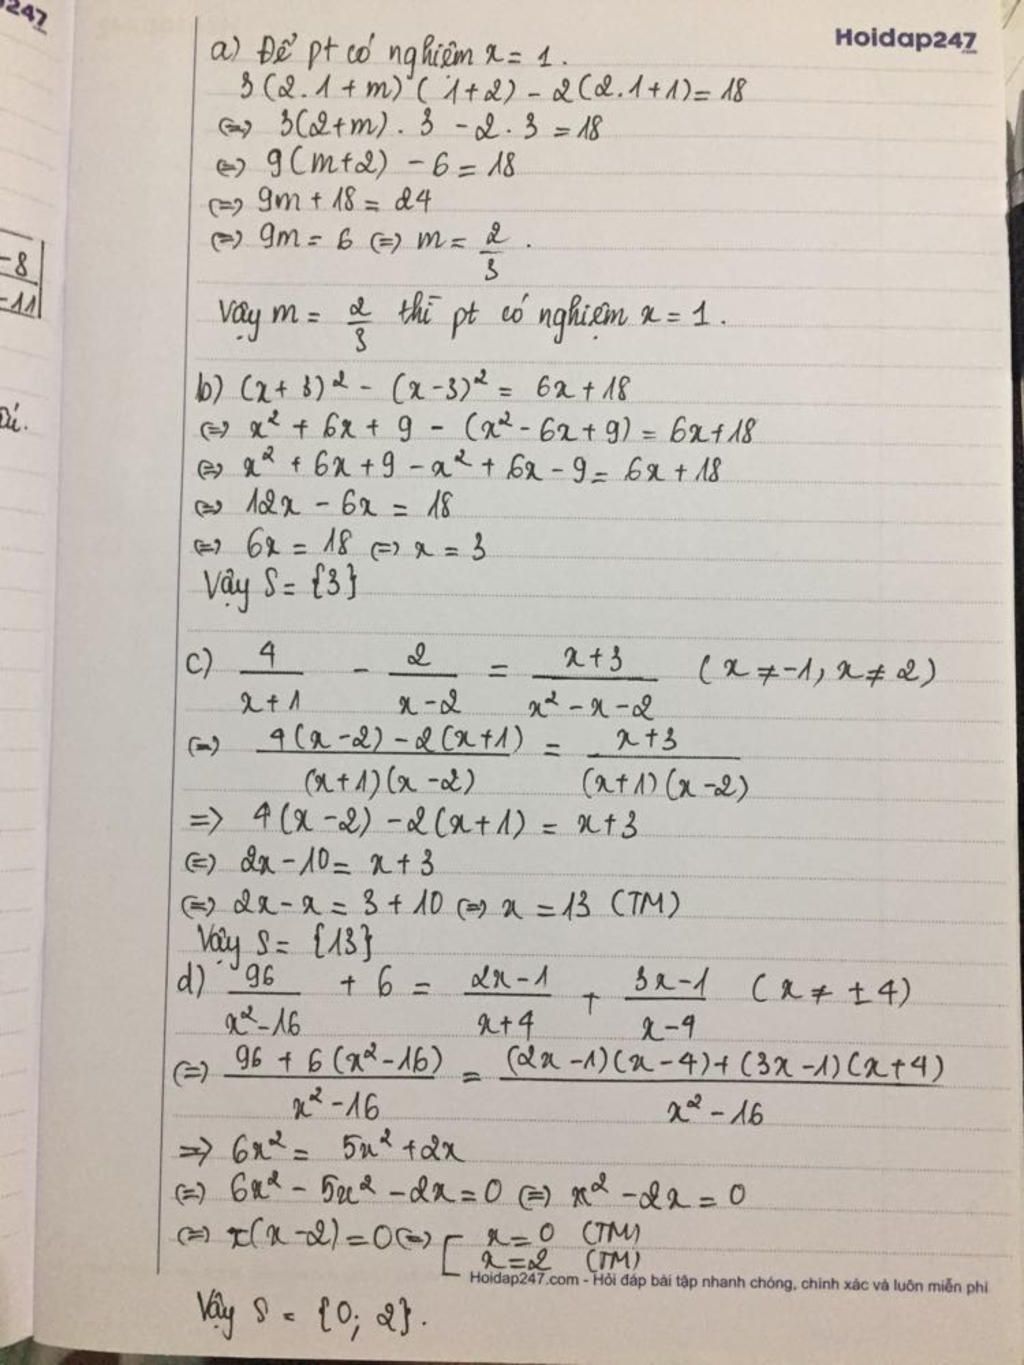 247
Hoidap247
a) Để pt có nghiệm x = 1.
3(2.1+m)(1+2) - 2(2.1+1) = 18
⇔ 3(2+m).3 - 2.3 = 18
⇔ 9(m+2) - 6 = 18
⇔ 9m + 18 = 24
⇔ 9m = 6 ⇔ m = 2/3.
-8
=11
Vậy m = 2/3 thì pt có nghiệm x = 1.
b) (x+3)² - (x-3)² = 6x+18
⇔ x² + 6x + 9 - (x² - 6x + 9) = 6x+18
⇔ x² + 6x + 9 - x² + 6x - 9 = 6x + 18
⇔ 12x - 6x = 18
⇔ 6x = 18 ⇔ x = 3
Vậy S = {3}
c) 4/(x+1) - 2/(x-2) = (x+3)/(x² - x - 2) (x ≠ -1, x ≠ 2)
⇔ (4(x-2) - 2(x+1))/((x+1)(x-2)) = (x+3)/((x+1)(x-2))
=> 4(x-2) - 2(x+1) = x+3
⇔ 2x - 10 = x + 3
⇔ 2x - x = 3 + 10 ⇔ x = 13 (TM)
Vậy S = {13}
d) 96/(x²-16) + 6 = (2x-1)/(x+4) + (3x-1)/(x-4) (x ≠ ±4)
⇔ (96 + 6(x²-16))/(x²-16) = ((2x-1)(x-4)+(3x-1)(x+4))/(x²-16)
=> 6x² = 5x² + 2x
⇔ 6x² - 5x² - 2x = 0 ⇔ x² - 2x = 0
⇔ x(x-2) = 0 ⇔ [ x = 0 (TM)
x = 2 (TM)
Hoidap247.com - Hỏi đáp bài tập nhanh chóng, chính xác và luôn miễn phí
Vậy S = {0; 2}.